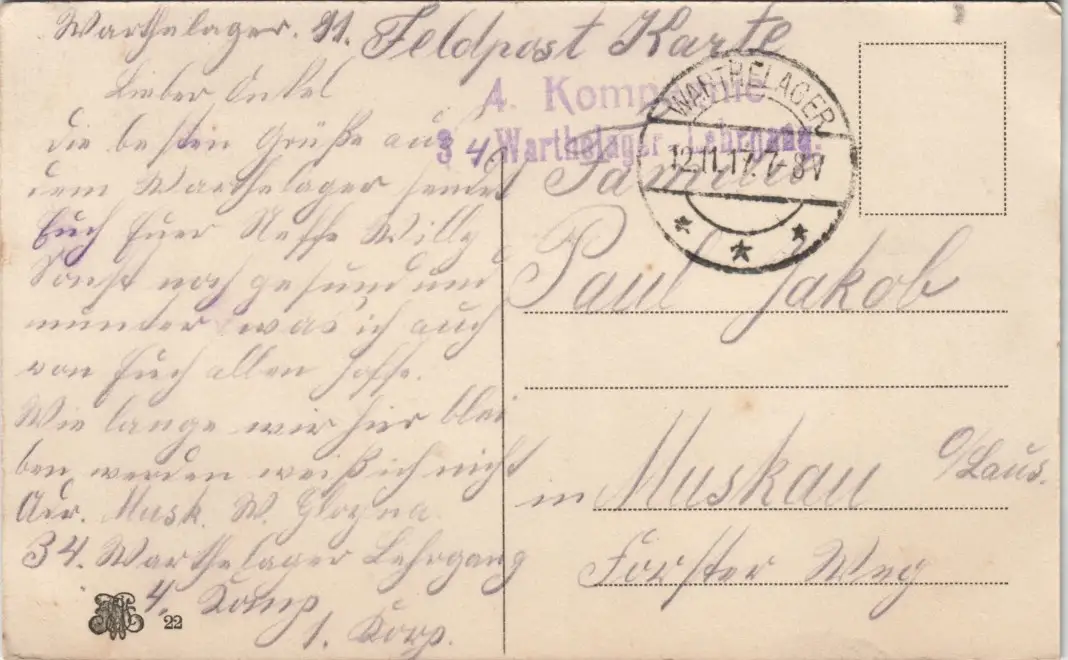 Warthelager. 11.
Lieber Onkel
die besten Grüße aus
dem Warthelager sendet
Euch Euer Neffe Willy
Sonst noch gesund und
munter was ich auch
von Euch allen hoffe.
Wie lange wir hier blei
ben werden weiß ich nicht
Adr. Musk. W. Glogna
34. Warthelager Lehrgang
4. Komp.
1. Korp.
22
Feldpost Karte
4. Kompanie
34 Warthelager-Lehrgang.
WARTHELAGER
12.11.17. 7-8V
Familie
Paul Jakob
in Muskau O/Laus.
Forster Weg